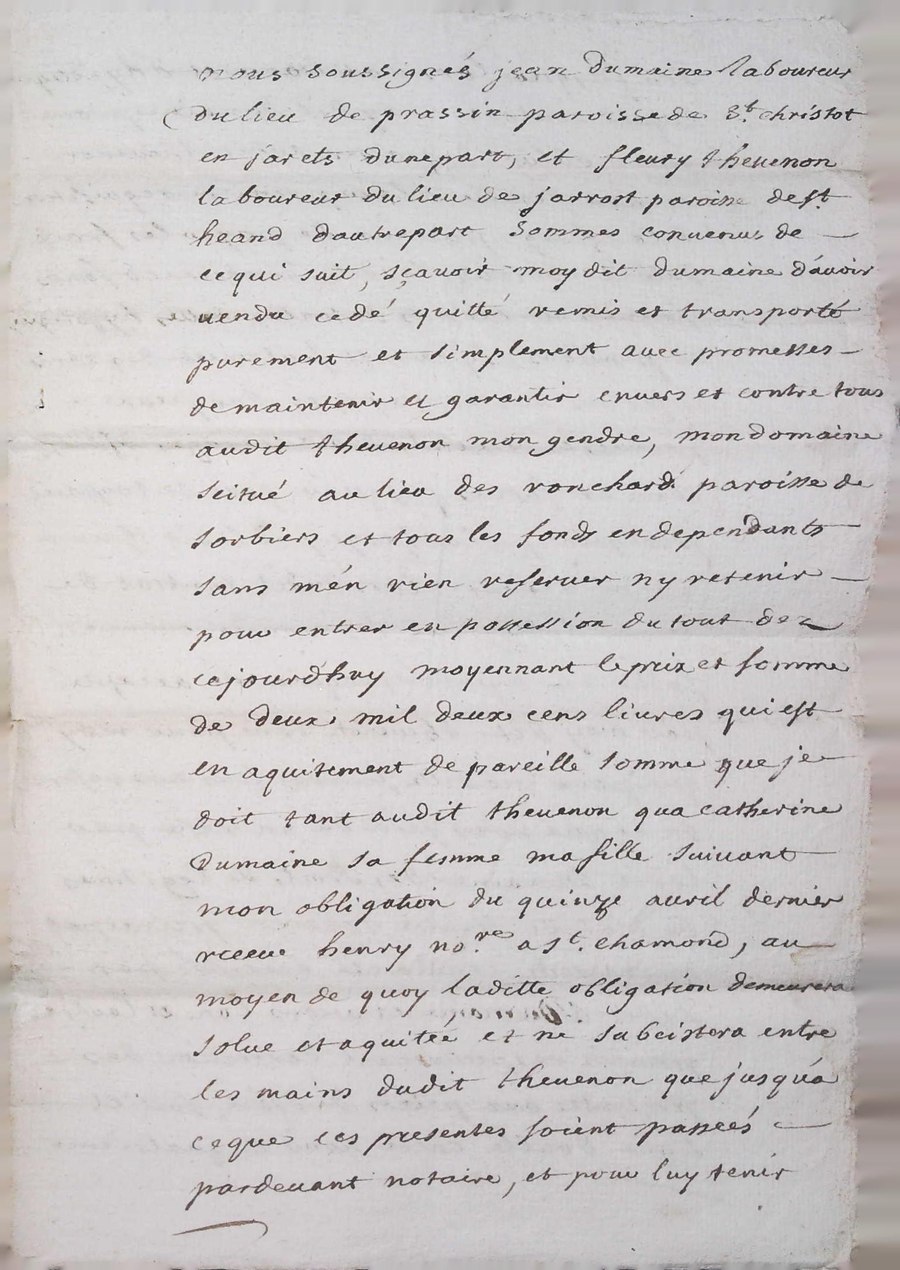 nous soussignés jean dumaine laboureur
du lieu de prassin paroisse de St. christot
en jarets dunepart, et fleury thevenon
laboureur du lieu de jarrost paroisse de st.
heand dautrepart sommes convenus de
ce qui suit, sçavoir moy dit dumaine d'avoir
vendu cedé quitté remis et transporté
purement et simplement avec promesses
de maintenir et garantir envers et contre tous
audit thevenon mon gendre, mon domaine
scitué au lieu des ronchard paroisse de
sorbiers et tous les fonds en dependants
sans m'en rien reserver ny retenir
pour entrer en possession du tout de
cejourdhuy moyennant le prix et somme
de deux mil deux cens livres qui est
en aquitement de pareille somme que je
doit tant audit thevenon qua catherine
dumaine sa femme ma fille suivant
mon obligation du quinze avril dernier
receue henry no.re a st. chamond, au
moyen de quoy laditte obligation demeurera
solue et aquitée et ne subcistera entre
les mains dudit thevenon que jusqu'a
ceque ces presentes soient passeés
pardevant notaire, et pour luy tenir